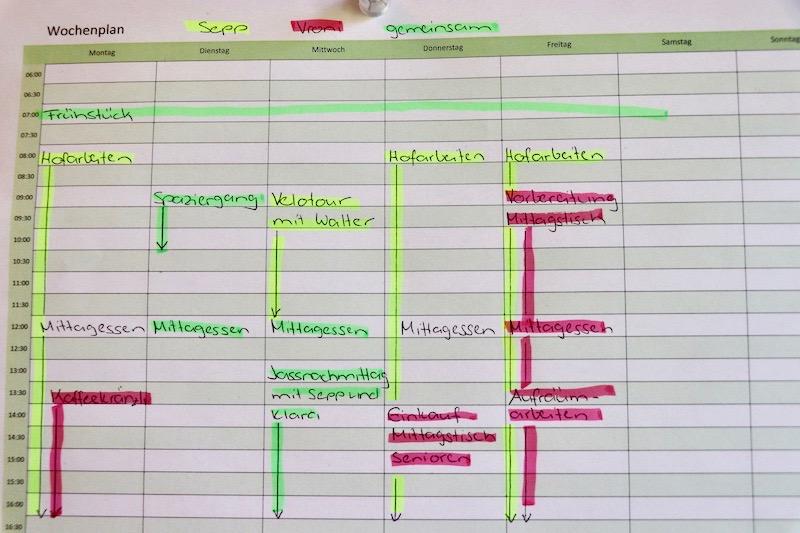 Wochenplan Sepp Vroni gemeinsam
Montag Dienstag Mittwoch Donnerstag Freitag Samstag Sonntag
06:00
06:30
07:00 Frühstück
08:00 Hofarbeiten Hofarbeiten Hofarbeiten
08:30
09:00 Spaziergang Velotour Vorbereitung
09:30 mit Walter Mittagstisch
10:00
10:30
11:00
11:30
12:00 Mittagessen Mittagessen Mittagessen Mittagessen Mittagessen
12:30
13:00 Jassnachmittag
13:30 Kaffeekränzli mit Sepp und Aufräum-
14:00 Klara Einkauf arbeiten
14:30 Mittagstisch
15:00 Senioren
15:30
16:00
16:30